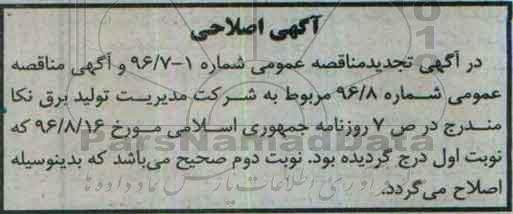 آگهی اصلاحی
در آگهی تجدیدمناقصه عمومی شماره ۱-۹۶/۷ و آگهی مناقصه
عمومی شماره ۹۶/۸ مربوط به شرکت مدیریت تولید برق نکا
مندرج در ص ۷ روزنامه جمهوری اسلامی مورخ ۹۶/۸/۱۶ که
نوبت اول درج گردیده بود. نوبت دوم صحیح می‌باشد که بدینوسیله
اصلاح می‌گردد.
ParsNamadData